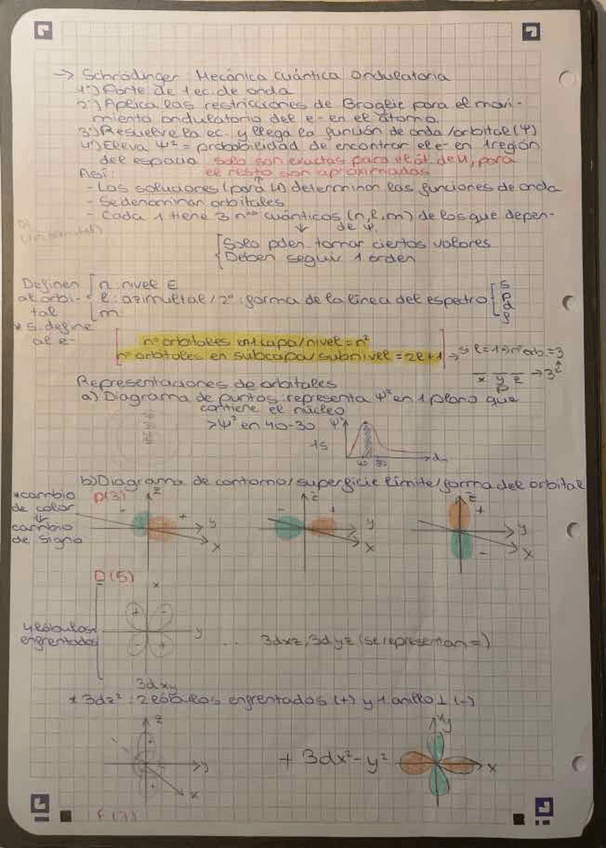 → Schrödinger: Mecánica Cuántica Ondulatoria
1º) Parte de 1 ec. de onda
2º) Aplica las restricciones de Broglie para el movi-
miento ondulatorio del e- en el átomo.
3º) Resuelve la ec. y llega la función de onda/orbital (Ψ)
4º) Eleva Ψ² = probabilidad de encontrar el e- en 1 región
del espacio. solo son exactas para el át. de H, para
Así: el resto son aproximadas
- Las soluciones (para H) determinan las funciones de onda
- Se denominan orbitales
- Cada 1 tiene 3 nos cuánticos (n, l, m) de los que depen-
↓ de Ψ.
Solo pden tomar ciertos valores
Deben seguir 1 orden
Definen n: nivel E
al orbi- l: azimultal / 2º: forma de la línea del espectro s p d f
tal m
* s define
al e-
nº orbitales en 1 capa/nivel = n²
nº orbitales en subcapa/subnivel = 2l+1 → si l=1 → nº orb. = 3
x y z → 3
p
Representaciones de orbitales
a) Diagrama de puntos: representa Ψ² en 1 plano que
contiene el núcleo
>Ψ² en 40-30 Ψ²
1s
b) Diagrama de contorno/superficie límite/forma del orbital
*cambio p(3) z z z
de color
↓
cambio
de signo
- + y x
- + y x
+ - y x
D(5)
x
+ - y
- +
4 lóbulos
enfrentados
... 3dxz, 3dyz (se representan =)
3dxy
* 3dz²: 2 lóbulos enfrentados (+) y 1 anillo ⊥ (-)
z xy
y + 3dx²-y² x
x
F(7)